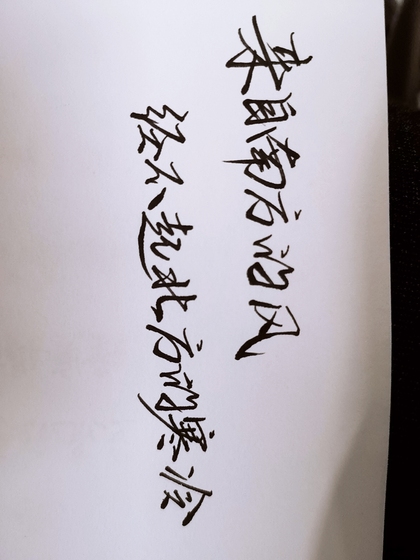 来自南方的风
经不起北方的寒冷